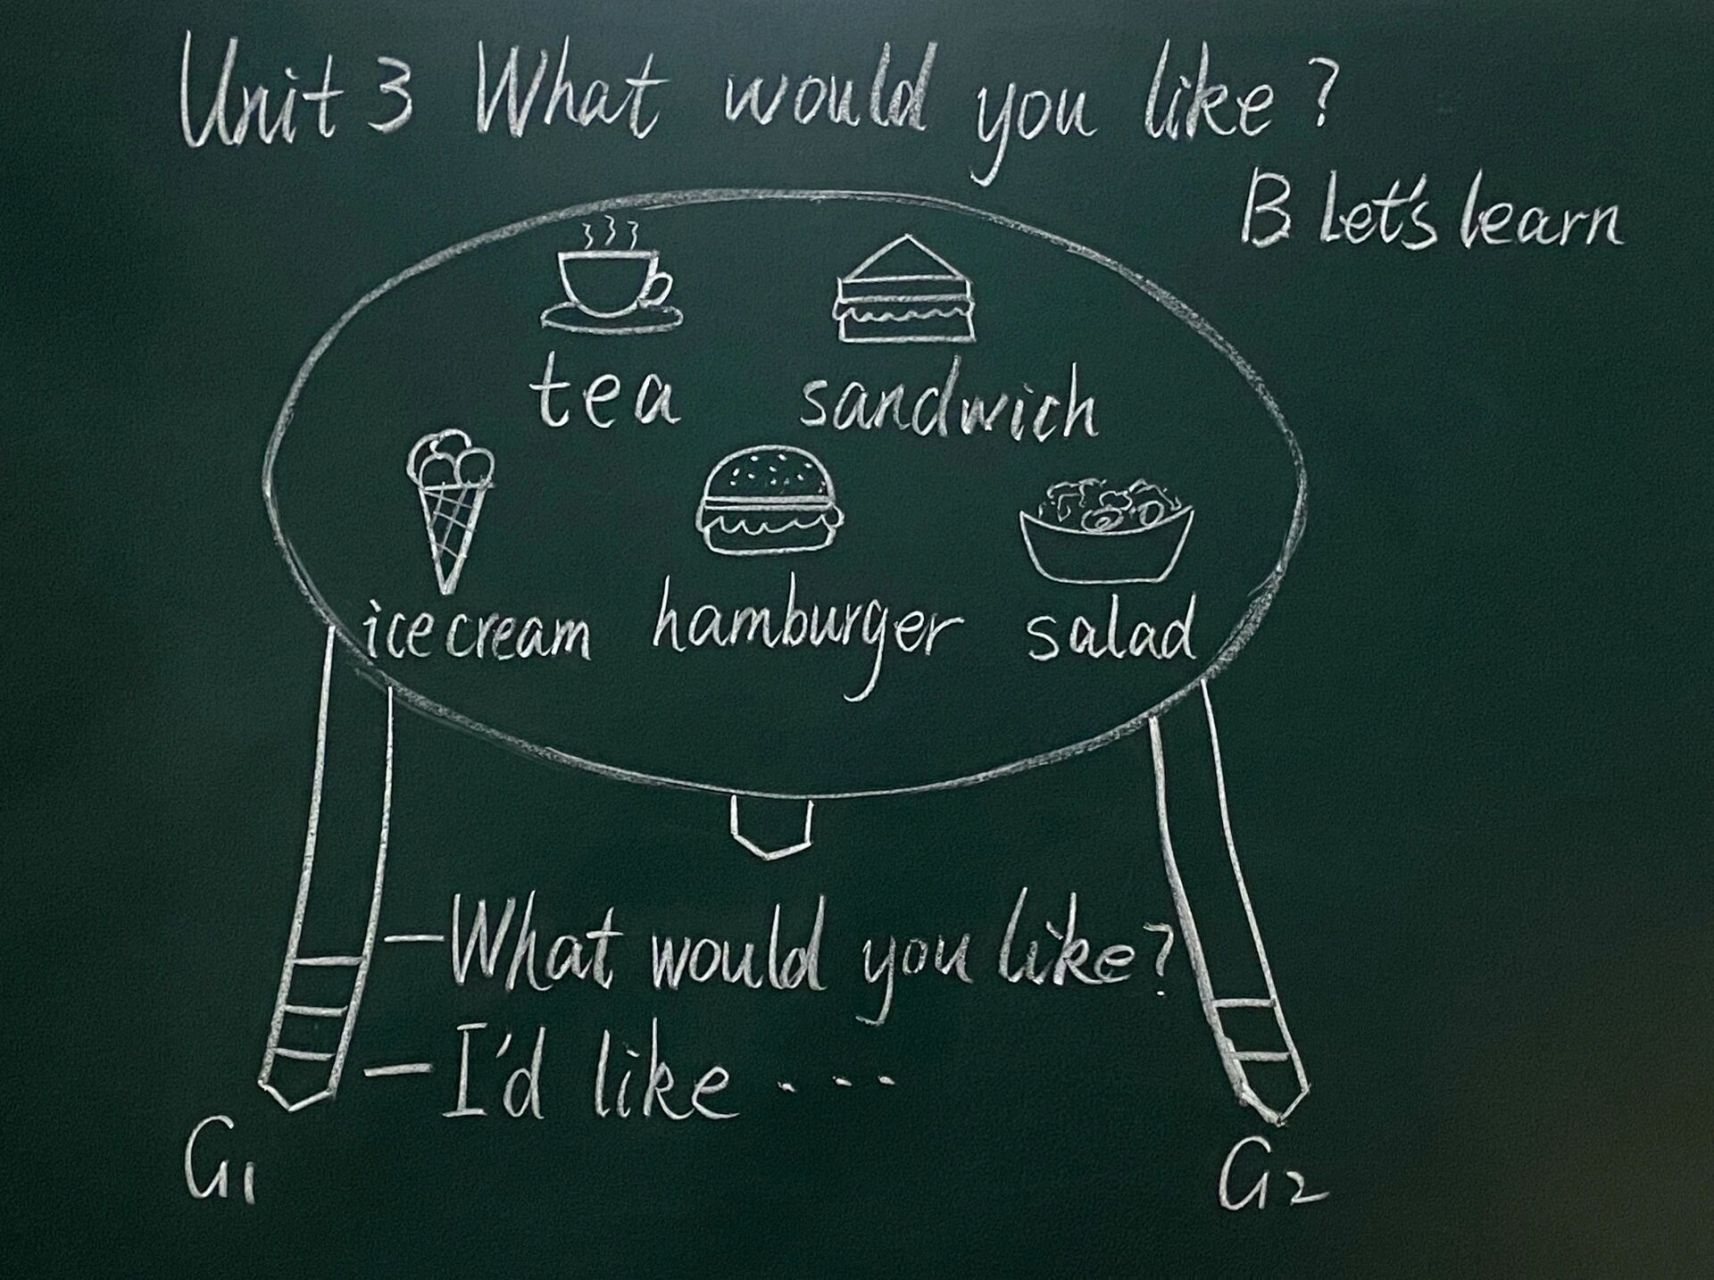 Unit 3 What would you like?
B Let's learn
tea sandwich
ice cream hamburger salad
—What would you like?
—I'd like ····
G1 G2